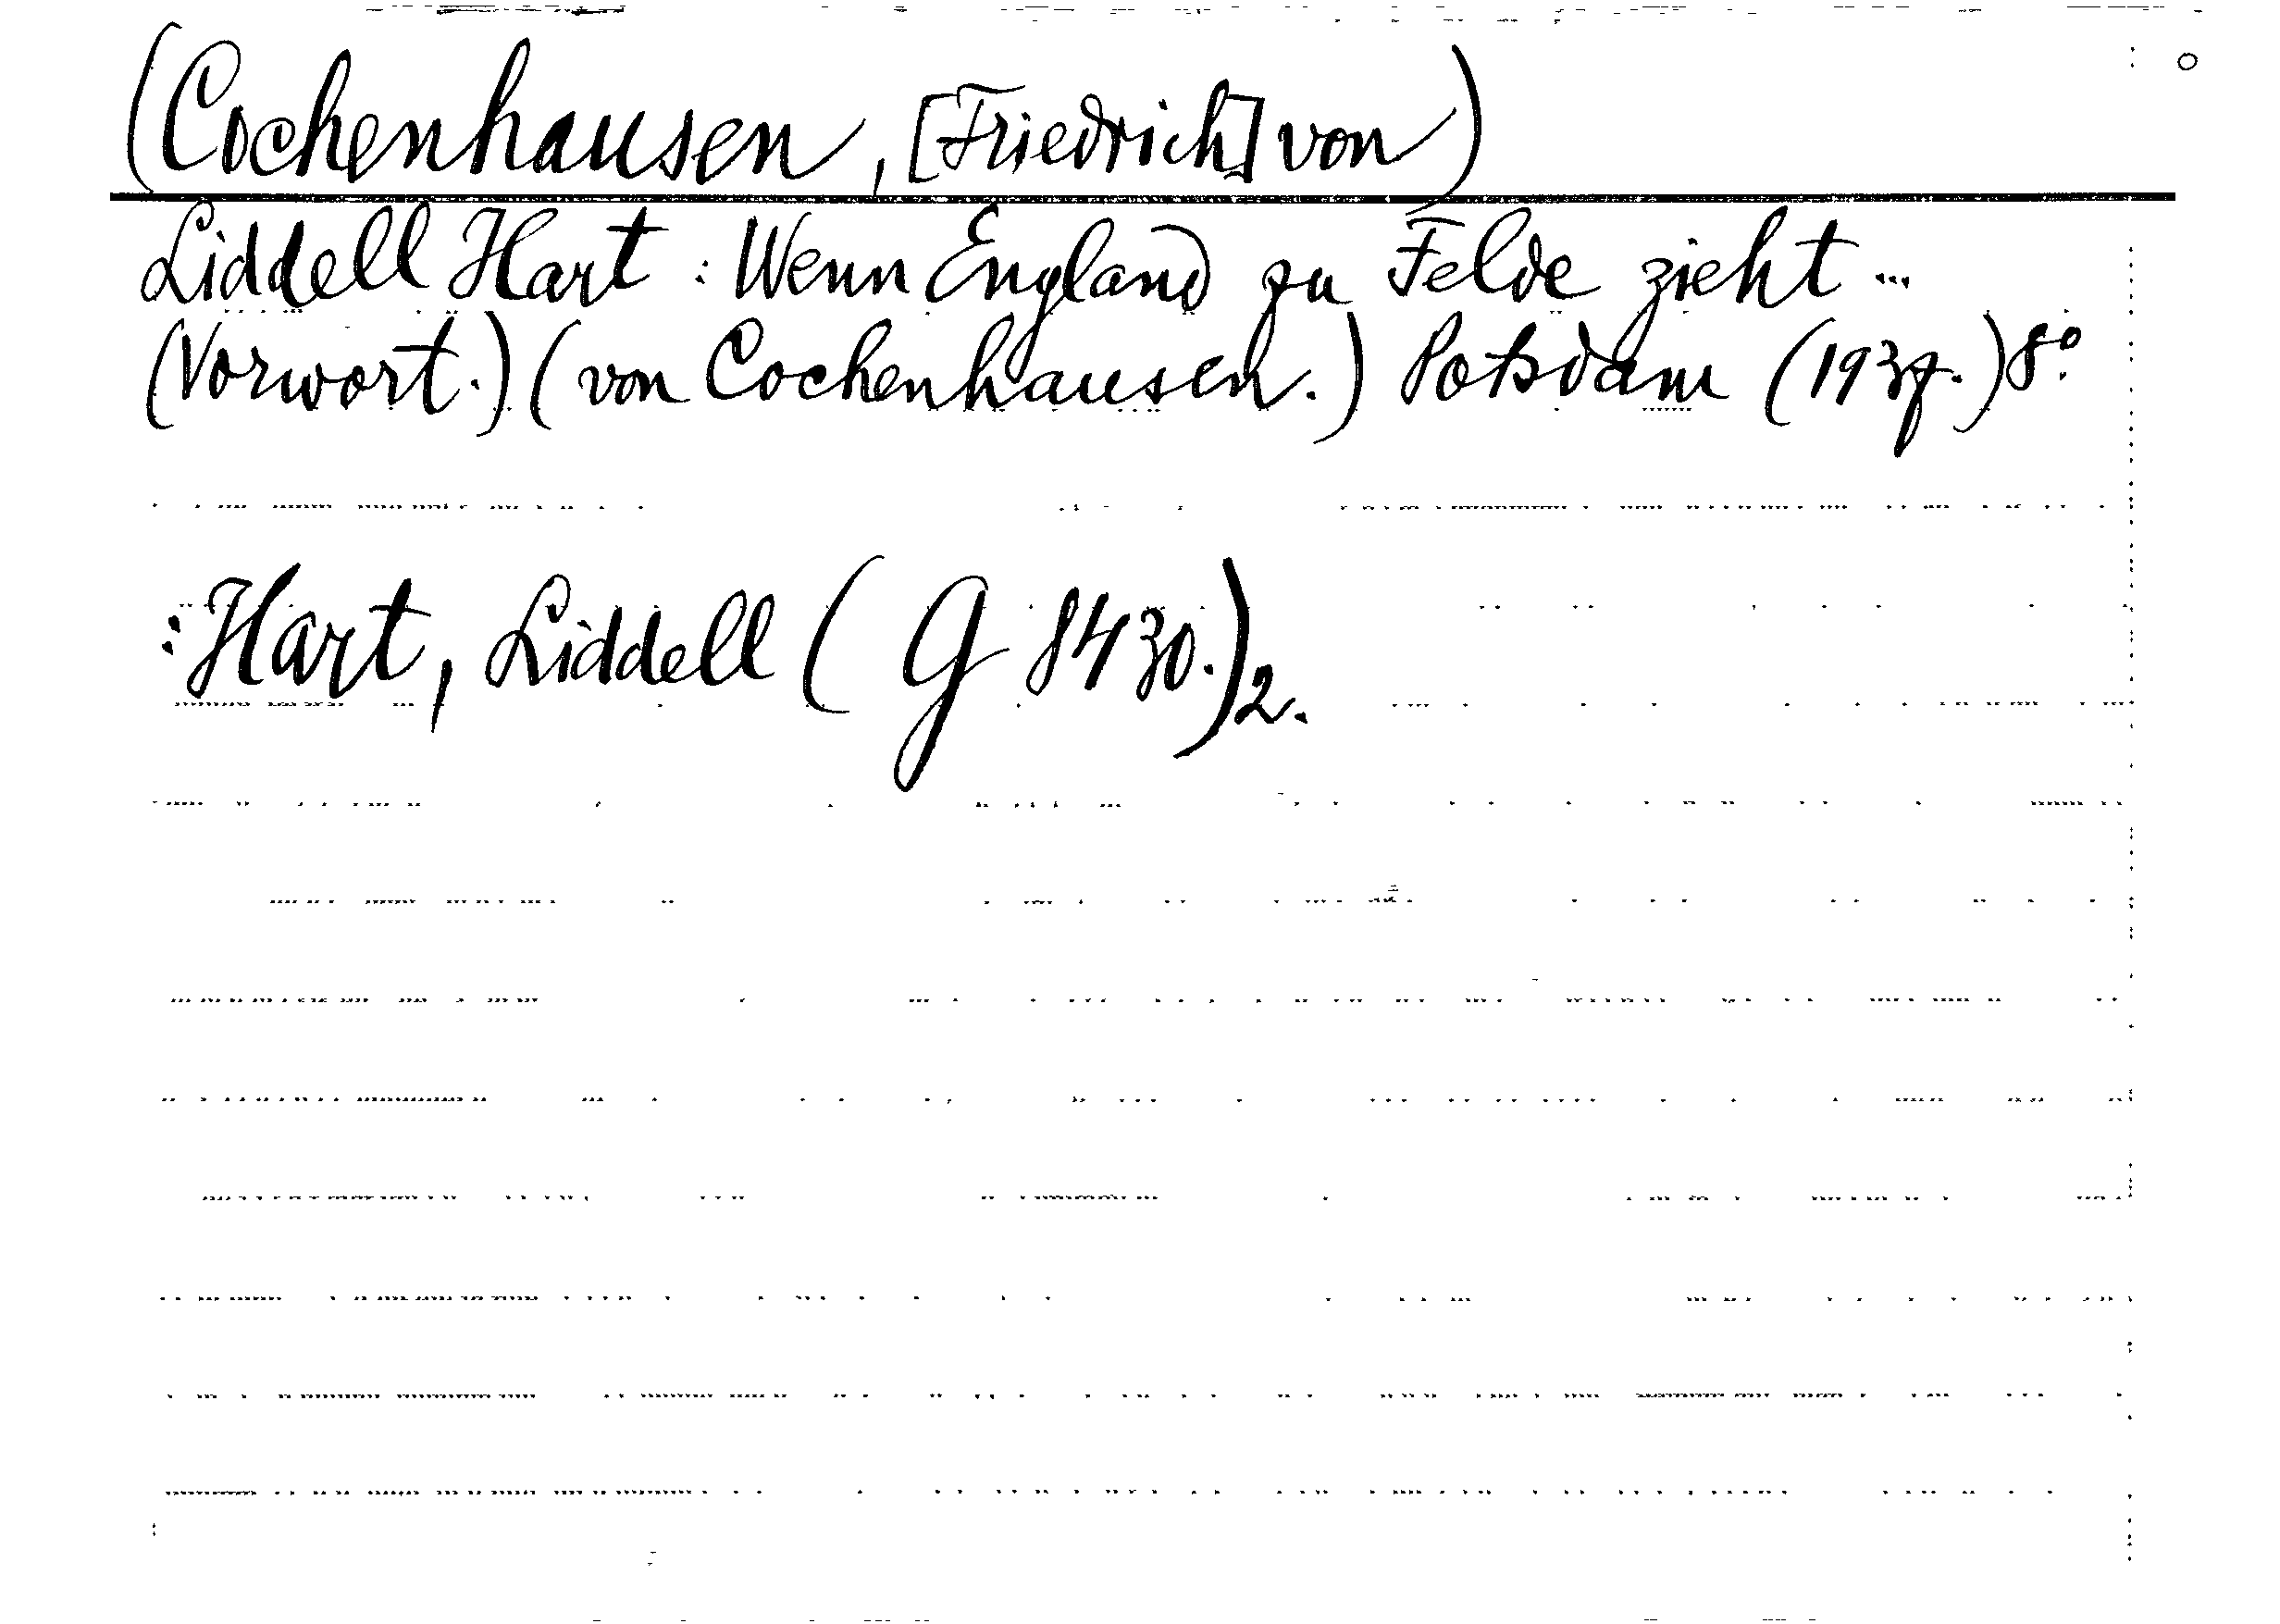 (Cochenhausen, [Friedrich] von)
Liddell Hart : Wenn England zu Felde zieht ...
(Vorwort.) (von Cochenhausen.) Potsdam (1937.) 8°.
: Hart, Liddell ( G 8430.)2.